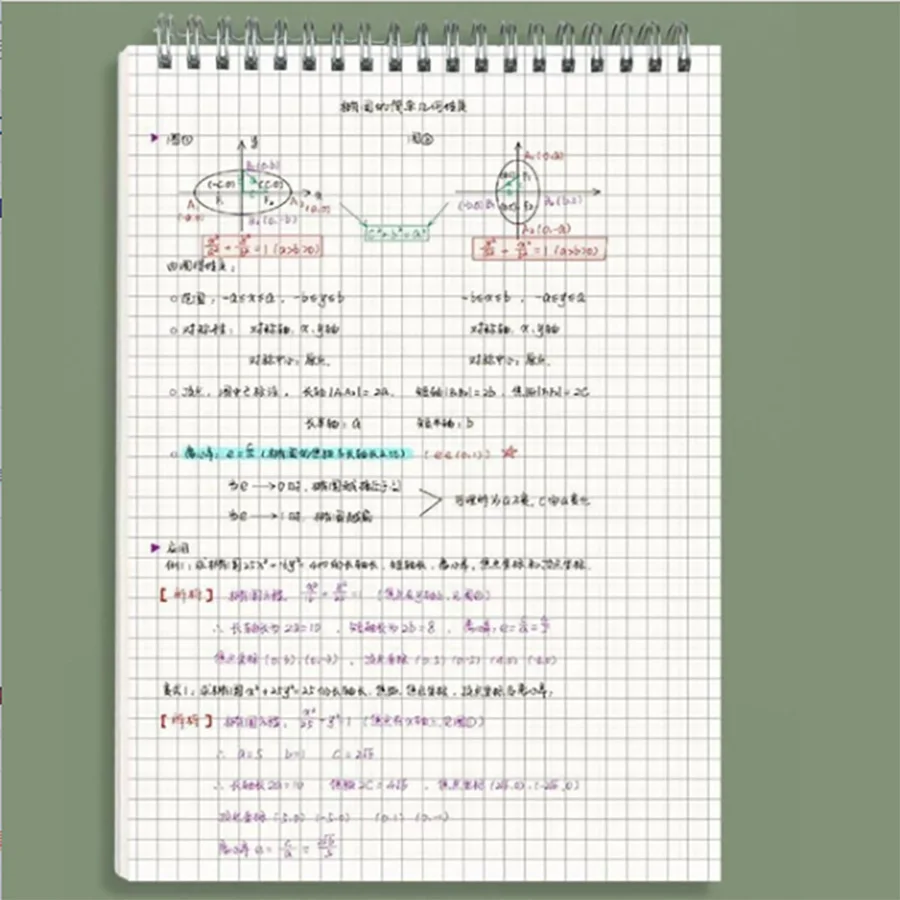 椭圆的简单几何性质
图① 图②
y
B₂(0,b)
(-c,0) (c,0) x
F₁ F₂
A₁(-a,0) A₂(a,0)
B₁(0,-b)
A₂(0,a)
F₁
(-b,0)B₁ B₂(b,0)
F₂
A₁(0,-a)
c²+b²=a²
x²/a² + y²/b² =1 (a>b>0)
=1 (a>b>0)
由图得性质:
○ 范围: -a≤x≤a, -b≤y≤b -b≤x≤b, -a≤y≤a
○ 对称性: 对称轴: x、y轴 对称轴: x、y轴
对称中心: 原点 对称中心: 原点
○ 顶点: 图中已标注, 长轴|A₁A₂|=2a, 短轴|B₁B₂|=2b, 焦距|F₁F₂|=2c
长半轴: a 短半轴: b
○ 离心率: e=c/a (椭圆的焦距与长轴长之比) (e∈(0,1)) ☆
当e→0时, 椭圆
当e→1时, 椭圆越扁
可理解为a不变, c
▶ 应用
例1: 求椭圆25x²+16y²=400的长轴长, 短轴长, 离心率, 焦点坐标和顶点坐标.
[解析] 椭圆方程: x²/16 + y²/25 =1 (焦点在y轴上, 见图②)
∴ 长轴长为2a=10, 短轴长为2b=8, 离心率: e=c/a=3/5
焦点坐标 (0,3),(0,-3), 顶点坐标 (0,5) (0,-5) (4,0) (-4,0)
变式1: 求椭圆x²+25y²=25的长轴长, 焦距, 焦点坐标, 顶点坐标与离心率;
[解析] 椭圆方程: x²/25 + y²=1 (焦点在x轴上, 见图①)
∴ a=5 b=1 c=2√6
∴ 长轴长2a=10 焦距2c=4√6, 焦点坐标 (2√6,0),(-2√6,0)
顶点坐标 (5,0) (-5,0) (0,1) (0,-1)
离心率 e= c/a = 2√6/5